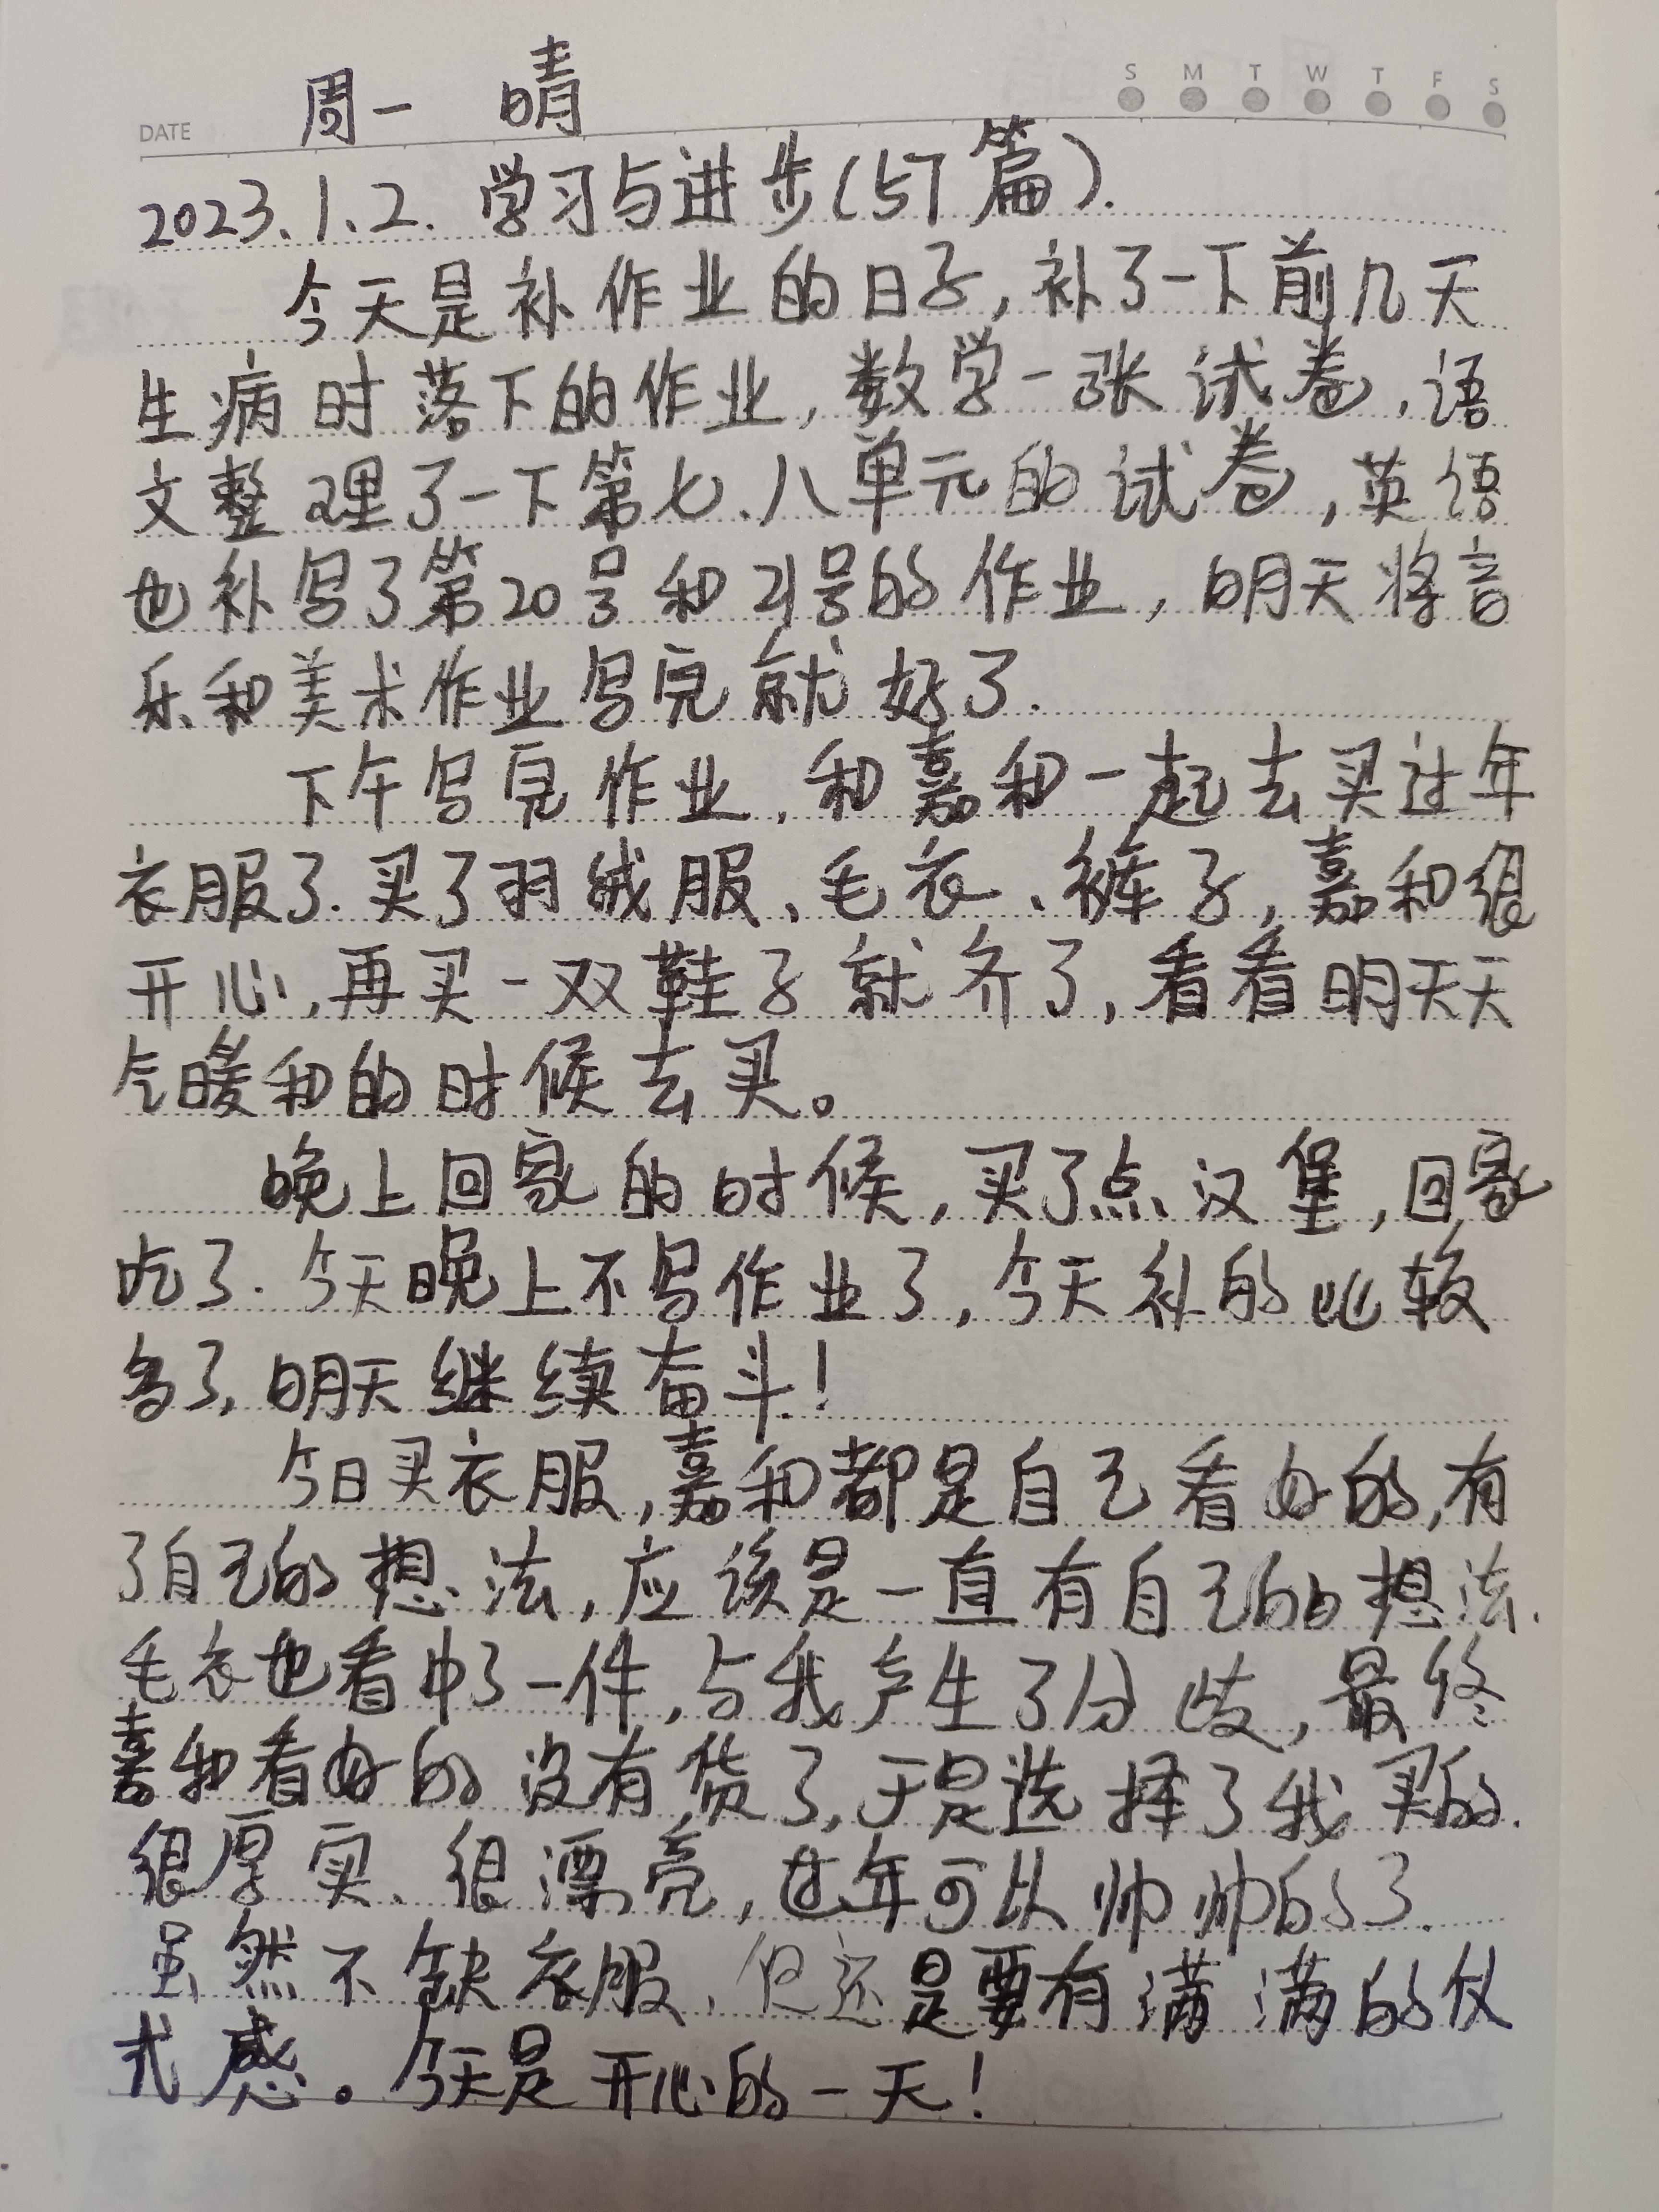 周一 晴
S M T W T F S
DATE
2023.1.2. 学习与进步(57篇).
今天是补作业的日子,补了一下前几天
生病时落下的作业,数学一张试卷,语
文整理了一下第七、八单元的试卷,英语
也补写了第20号和21号的作业,明天将音
乐和美术作业写完就好了.
下午写完作业,和嘉和一起去买过年
衣服了.买了羽绒服、毛衣、裤子,嘉和很
开心,再买一双鞋子就齐了,看看明天天
气暖和的时候去买。
晚上回家的时候,买了点汉堡,回家
吃了.今天晚上不写作业了,今天补的比较
多了,明天继续奋斗!
今日买衣服,嘉和都是自己看好的,有
了自己的想法,应该是一直有自己的想法.
毛衣也看中了一件,与我产生了分歧,最终
嘉和看好的没有货了,于是选择了我买的.
很厚实、很漂亮,过年可以帅帅的了.
虽然不缺衣服,但还是要有满满的仪
式感。今天是开心的一天!